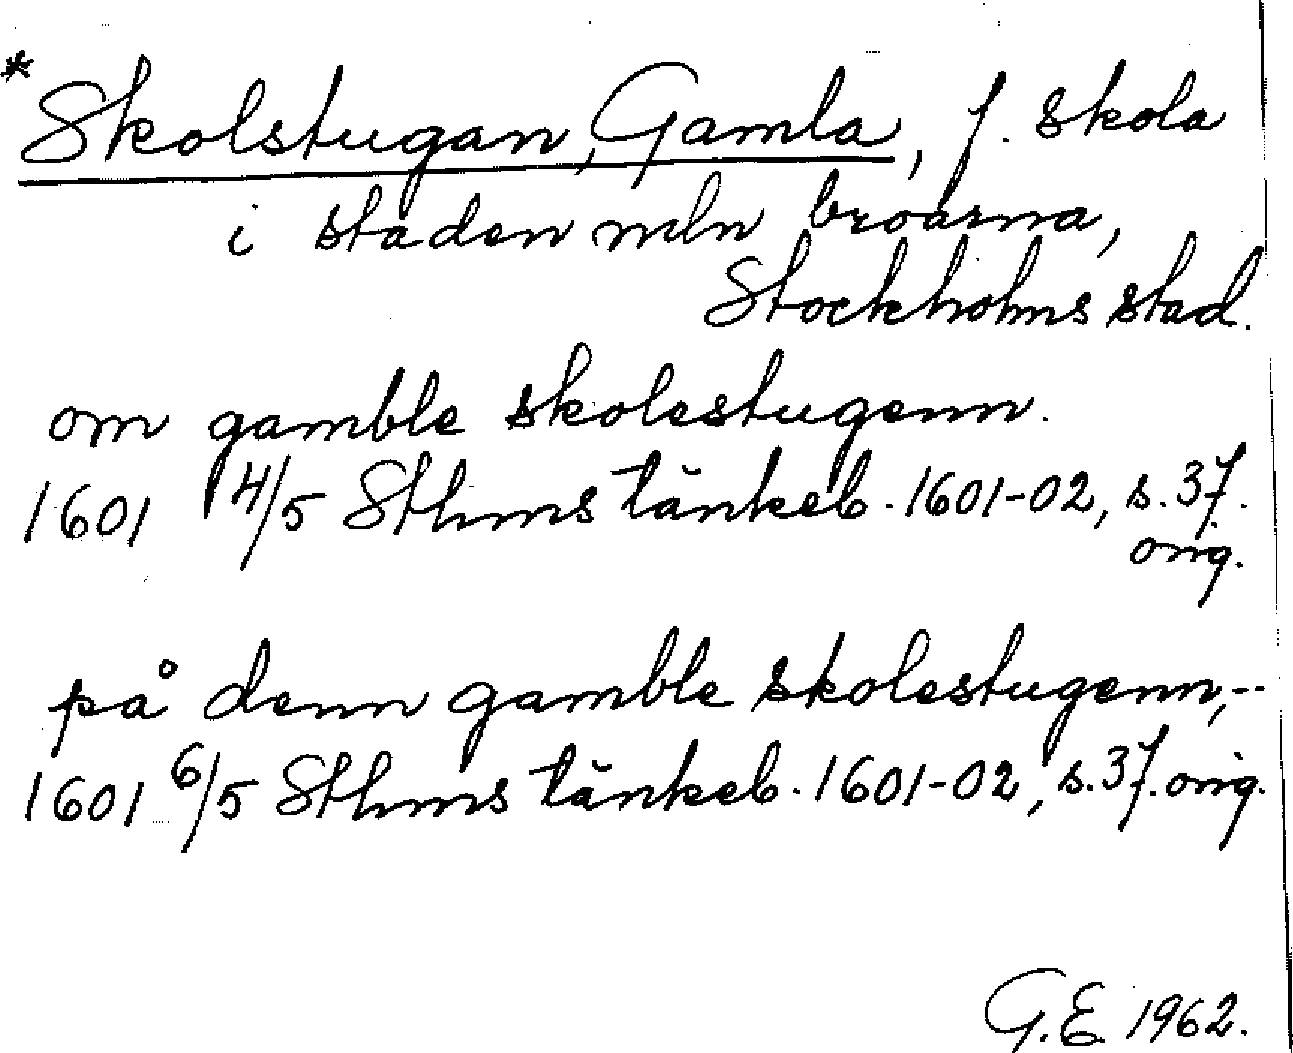 *Skolstugan, Gamla, f. skola
i staden mln broarna,
Stockholms stad.
om gamble skolestugenn.
1601 4/5 Sthms tänkeb. 1601-02, s. 37.
orig.
på denn gamble skolestugenn,--
1601 6/5 Sthms tänkeb. 1601-02, s. 37. orig.
G.E. 1962.